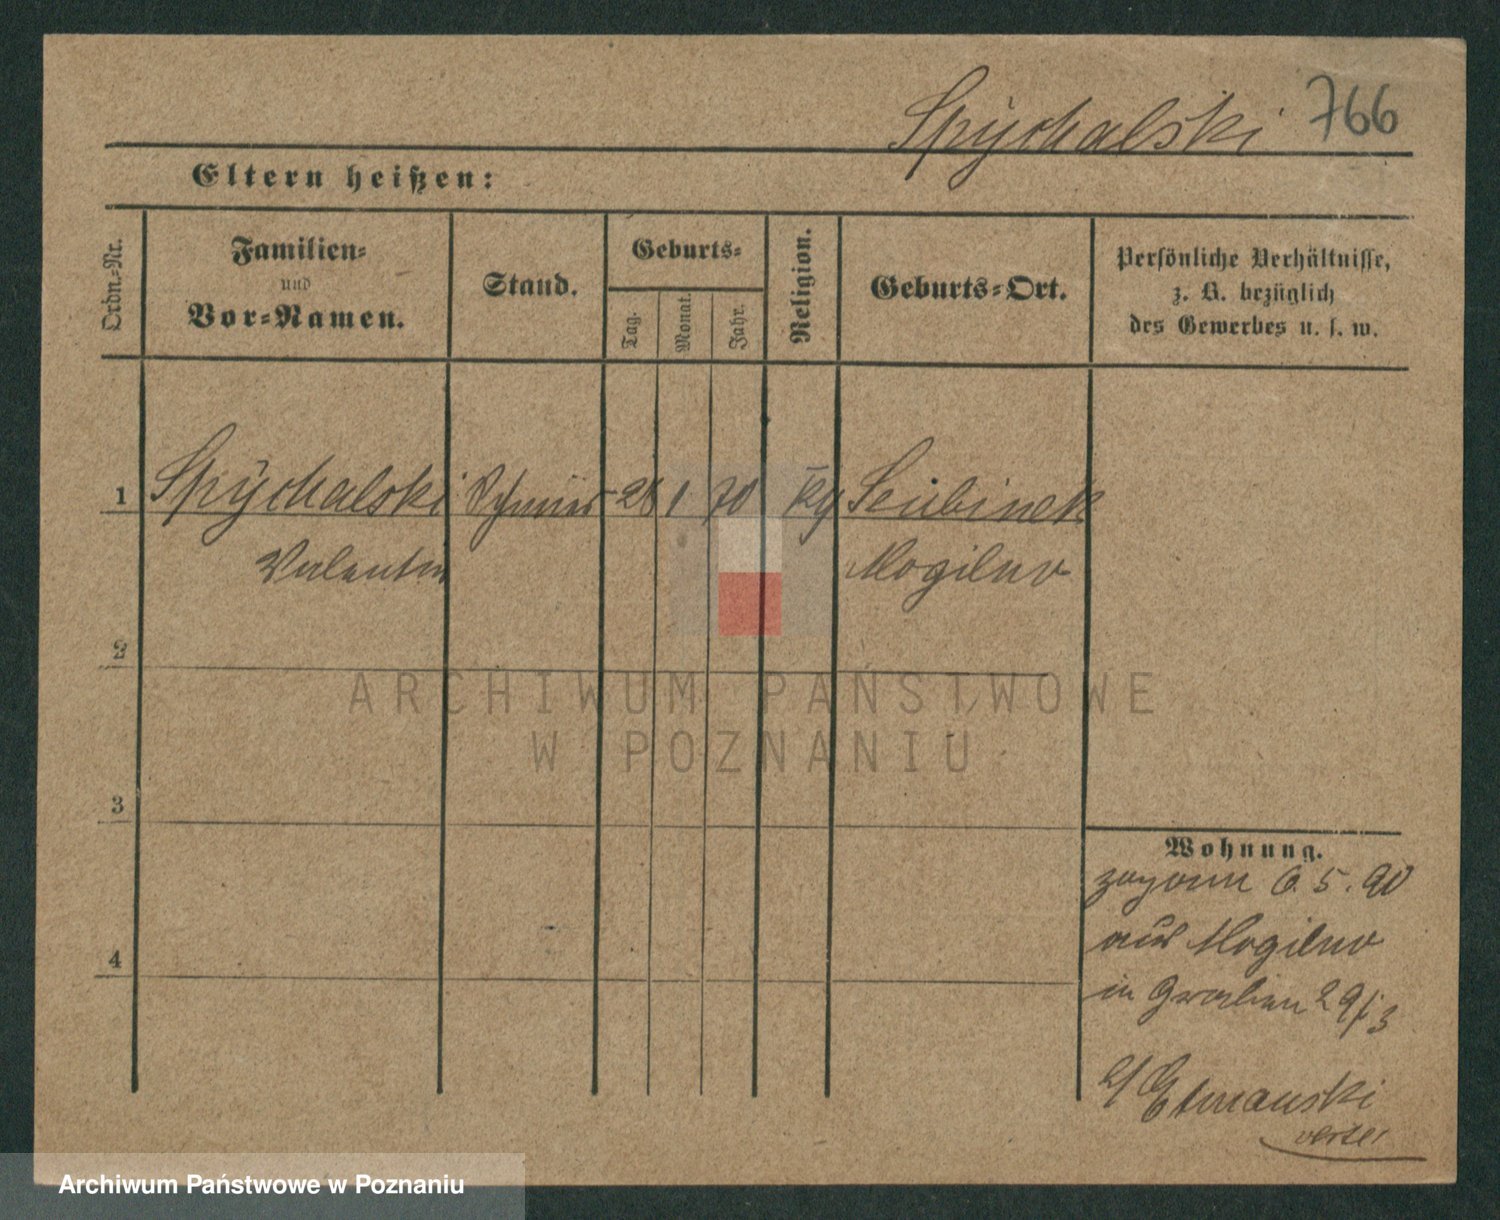 Spychalski 766
Eltern heißen:
Ordn.-Nr.
Familien-
und
Vor-Namen.
Stand.
Geburts-
Tag.
Monat.
Jahr.
Religion.
Geburts-Ort.
Persönliche Verhältnisse,
z. B. bezüglich
des Gewerbes u. s. w.
1 Spychalski 28 1 70
Valentin Mogilno
2
3
4
Wohnung.
6. 5. 90
aus Mogilno
in Graben 29/3
Etmanski
ARCHIWUM PAŃSTWOWE
W POZNANIU
Archiwum Państwowe w Poznaniu